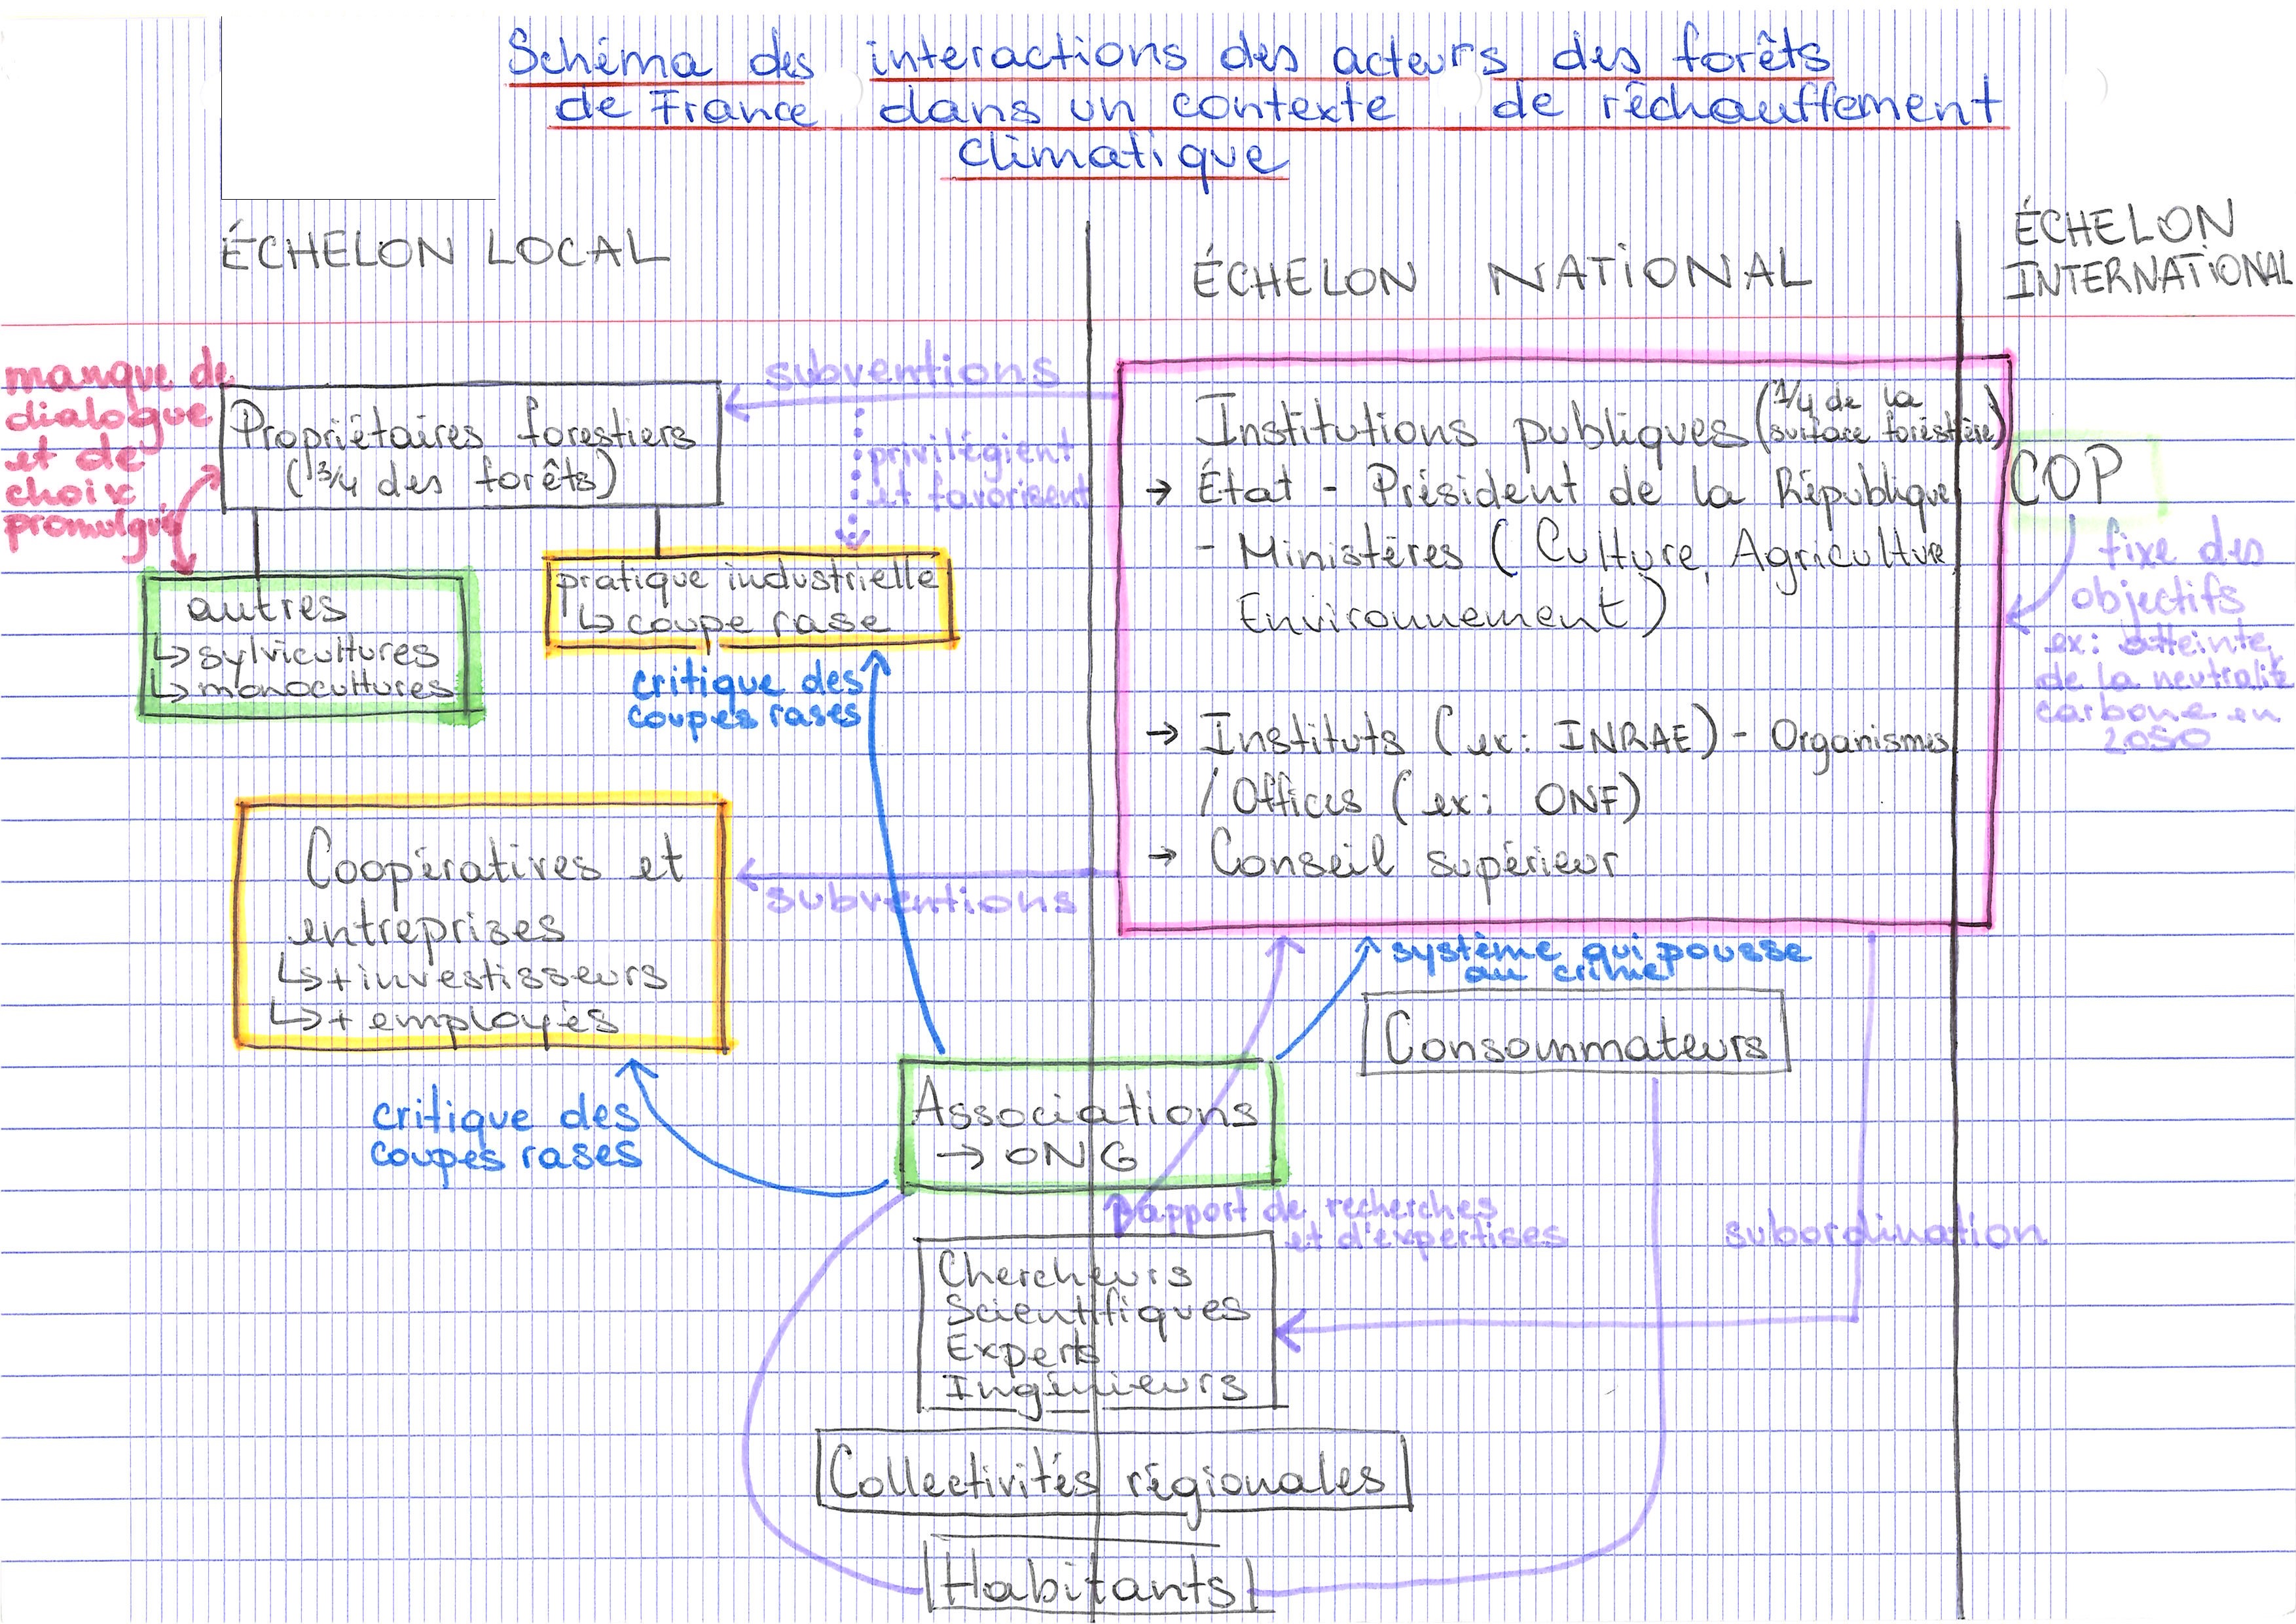 Schéma des interactions des acteurs des forêts
de France dans un contexte de réchauffement
climatique
ÉCHELON LOCAL
ÉCHELON NATIONAL
ÉCHELON
INTERNATIONAL
manque de
dialogue
et de
choix
promulgué
Propriétaires forestiers
(3/4 des forêts)
subventions
privilégient
et favorisent
autres
↳ sylvicultures
↳ monocultures
pratique industrielle
↳ coupe rase
critique des
coupes rases
Institutions publiques (1/4 de la
surface forestière)
→ État - Président de la République
- Ministères (Culture, Agriculture,
Environnement)
→ Instituts (ex: INRAE) - Organismes
/ Offices (ex: ONF)
→ Conseil supérieur
COP
fixe des
objectifs
ex: atteinte
de la neutralité
carbone en
2050
Coopératives et
entreprises
↳ + investisseurs
↳ + employés
subventions
critique des
coupes rases
système qui pousse
au crime
Consommateurs
Associations
→ ONG
rapport de recherches
et d'expertises
Chercheurs
Scientifiques
Experts
Ingénieurs
subordination
Collectivités régionales
Habitants